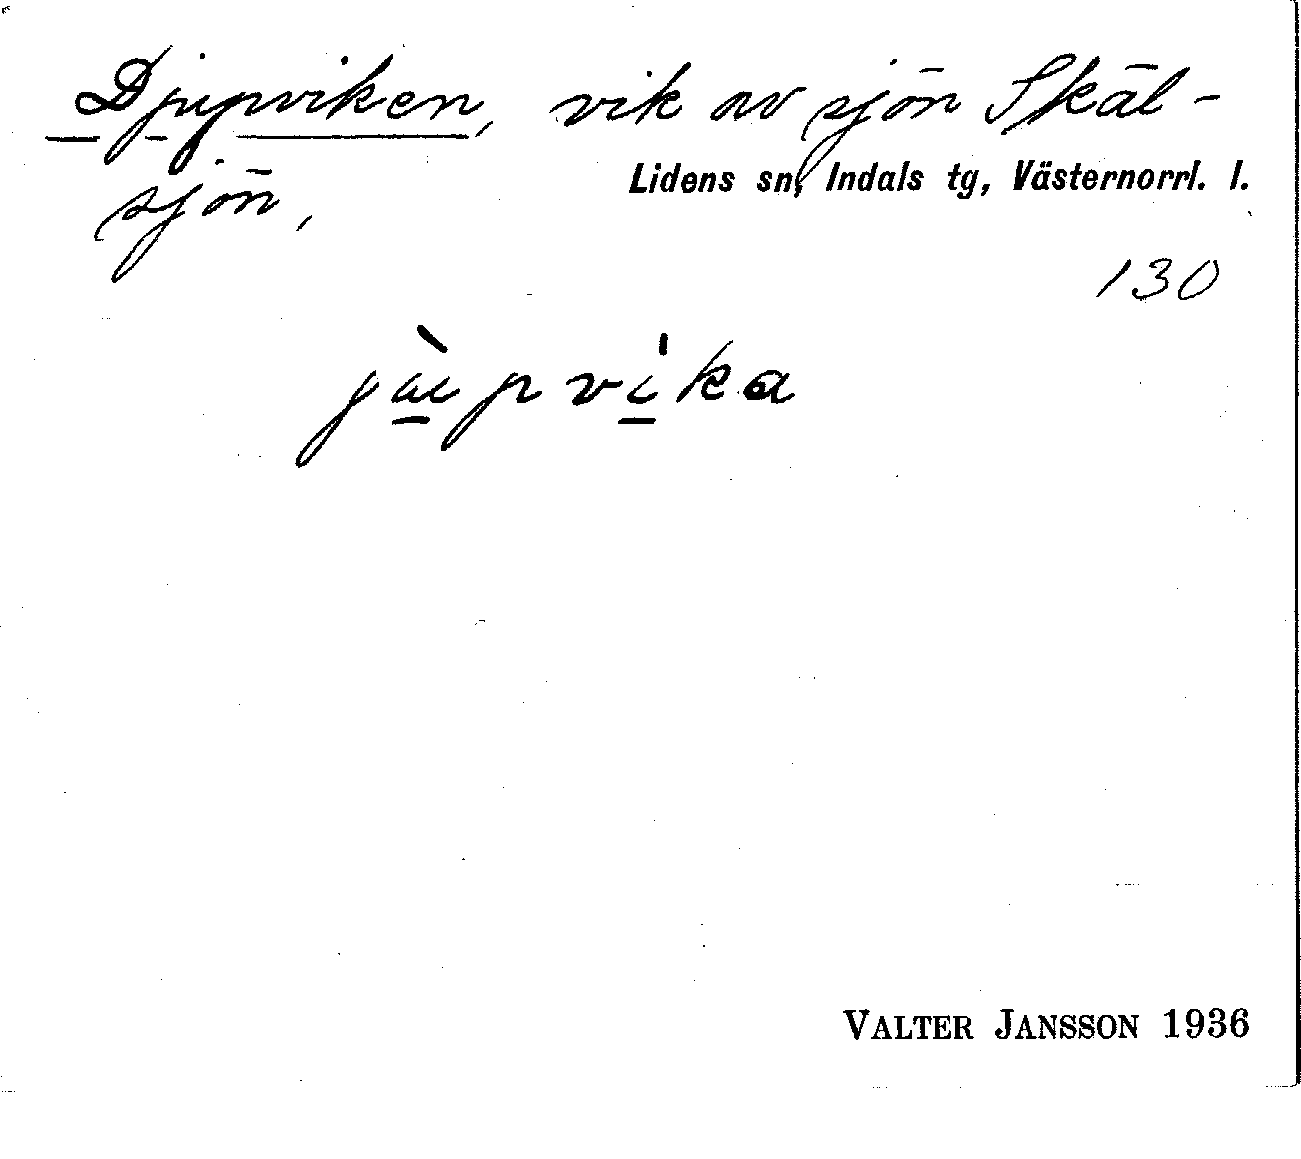 Djupviken, vik av sjön Skäl-
sjön,
Lidens sn, Indals tg, Västernorrl. l.
130
VALTER JANSSON 1936